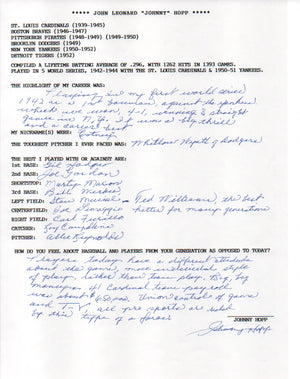 ***** JOHN LEONARD "JOHNNY" HOPP *****
ST. LOUIS CARDINALS (1939-1945)
BOSTON BRAVES (1946-1947)
PITTSBURGH PIRATES (1948-1949) (1949-1950)
BROOKLYN DODGERS (1949)
NEW YORK YANKEES (1950-1952)
DETROIT TIGERS (1952)
COMPILED A LIFETIME BATTING AVERAGE OF .296, WITH 1262 HITS IN 1393 GAMES.
PLAYED IN 5 WORLD SERIES, 1942-1944 WITH THE ST. LOUIS CARDINALS & 1950-51 YANKEES.
THE HIGHLIGHT OF MY CAREER WAS:
Playing in my first world series
1942 as a 1st baseman, against the yankees
which we won 4-1, winning 4 straight
games in N.Y. It was a big thrill
and a career best
MY NICKNAME(S) WERE:
THE TOUGHEST PITCHER I EVER FACED WAS: Whitlow Wyatt of Dodgers
THE BEST I PLAYED WITH OR AGAINST ARE:
1st BASE: Gil Hodges
2nd BASE: Joe Gordon
SHORTSTOP: Marty Marion
3rd BASE: Bill
LEFT FIELD: Stan Musial - Ted Williams, the best
CENTERFIELD: Joe Dimaggio hitter for many generations
RIGHT FIELD: Carl Furillo
CATCHER: Roy Campanella
PITCHER: Allie Reynolds
HOW DO YOU FEEL ABOUT BASEBALL AND PLAYERS FROM YOUR GENERATION AS OPPOSED TO TODAY?
Players today have a different attitude
about the game, more individual style
of play, rather than team play. Big leg
was 41 Cardinal team payroll
was about $ 600. Union control of game
and T.V., all pro sports are ruled
by this type of
JOHNNY HOPP
Johnny Hopp